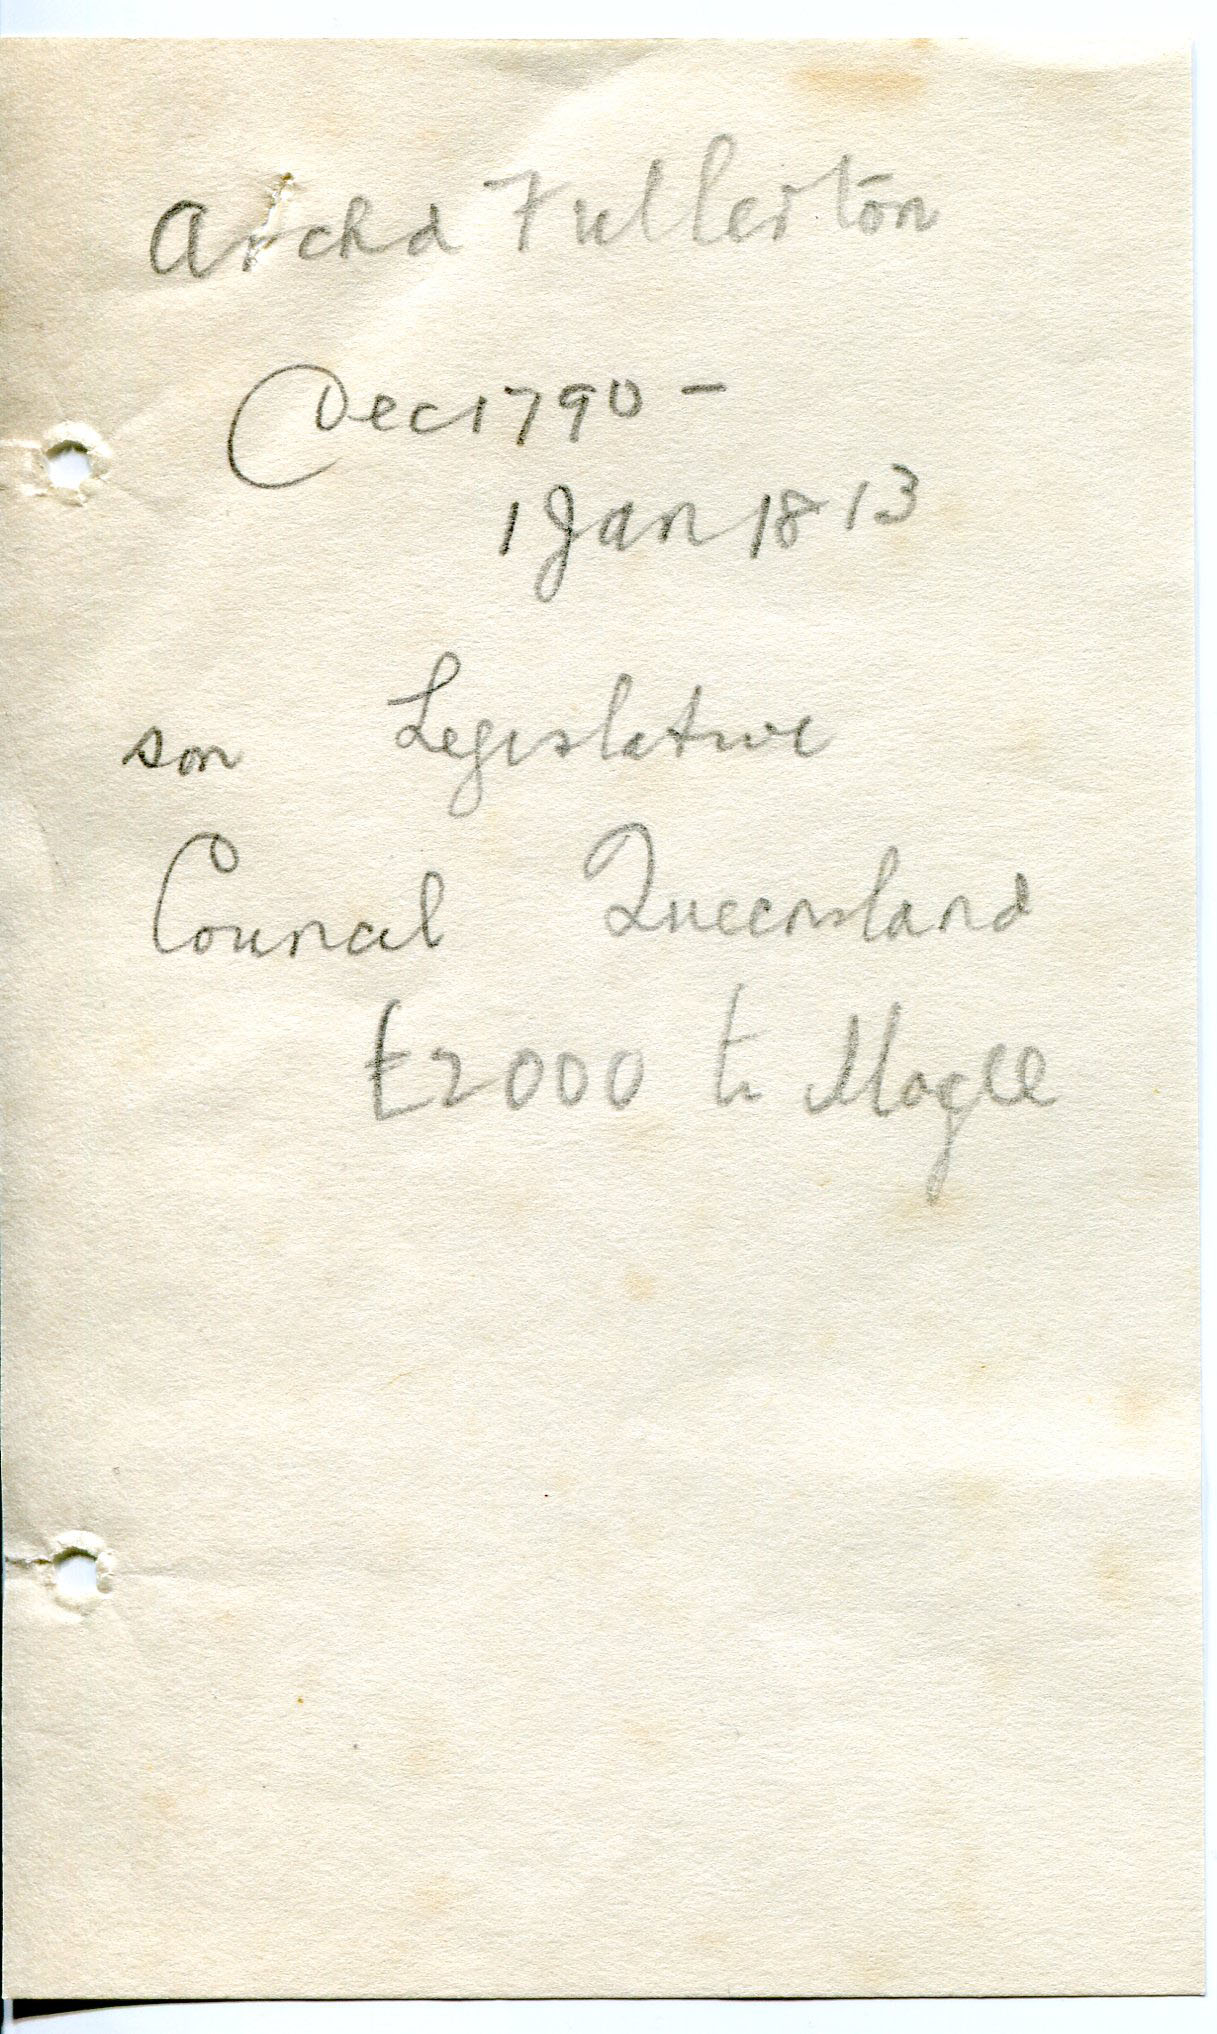 Archd Fullerton
Dec 1790 –
1 Jan 1813
son Legislative
Council Queensland
£2000 to Magee